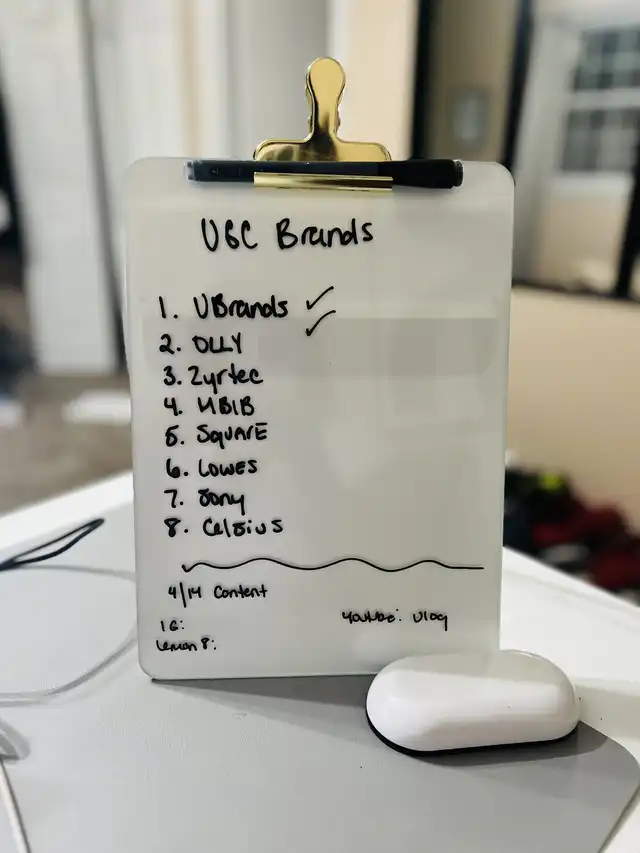 UGC Brands
1. UBrands ✓
2. OLLY ✓
3. Zyrtec
4. MBIB
5. SQUARE
6. LOWES
7. Sony
8. Celsius
4/14 Content
IG:
Youtube: Vlog
Lemon 8: